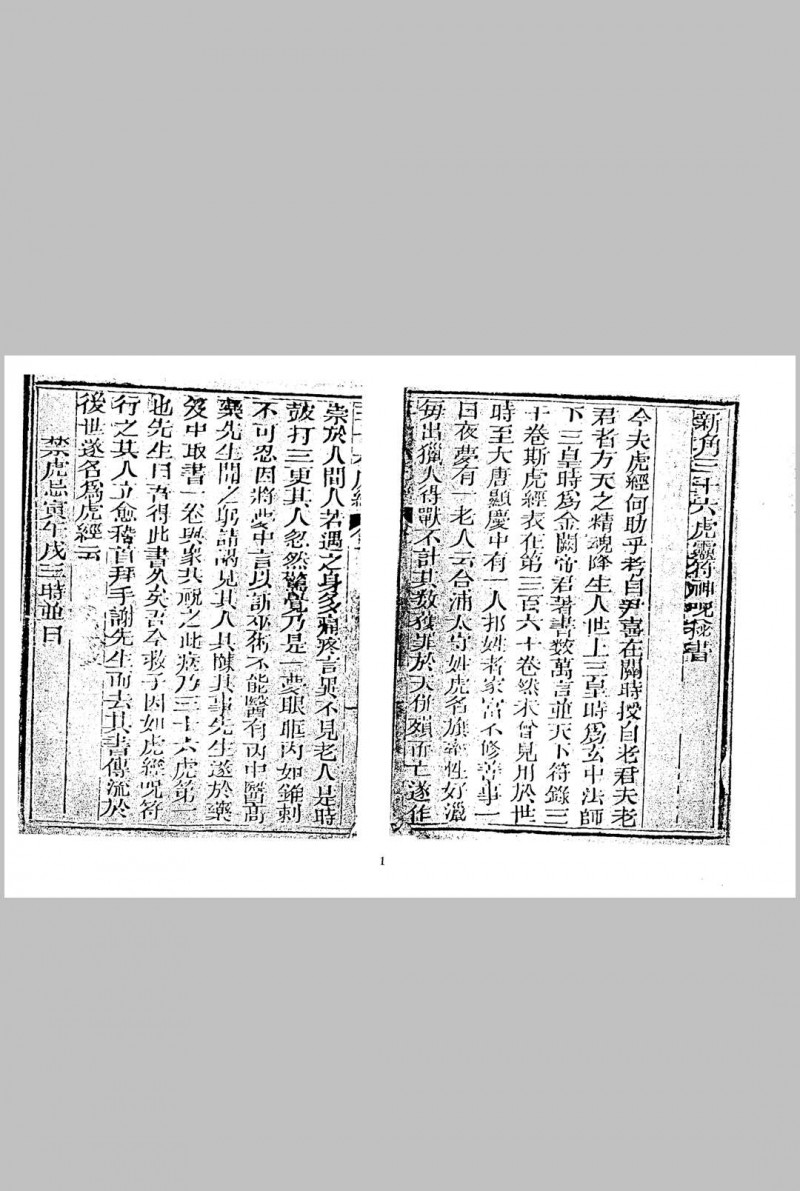 新角三十六虎靈符神呪秘書
今夫虎經何助乎考自尹喜在關時授自老君夫老
君者方天之精魂降生人世上三皇時為玄中法師
下三皇時為金闕帝君著書數萬言並天下符錄三
十卷斯虎經表在第三百六十卷梁未曾見用於世
時至大唐顯慶中有一人邦姓者家富不修善事一
日夜夢有一老人云合浦太守姓虎名旗 性好獵
每出獵人得獸不計其数獲罪於天併 而亡遂作
三十六虎經
祟於人間人若遇之身多痛疼言畢不見老人是時
鼓打三更其人忽然驚覺乃是一夢眼眶内如錐刺
不可忍因將夢中言以訪巫術不能醫有丙中醫高
藥先生聞之躬請謁見其人具陳其事先生遂於藥
笈中取書一卷與眾共視之此病乃三十六虎第一
也先生曰吾得此書久矣吾今救子因如虎經呪符
行之其人立愈稽首拜手謝先生而去其書傳流於
後世遂名為虎經云
禁虎忌寅午戌三時並日
1